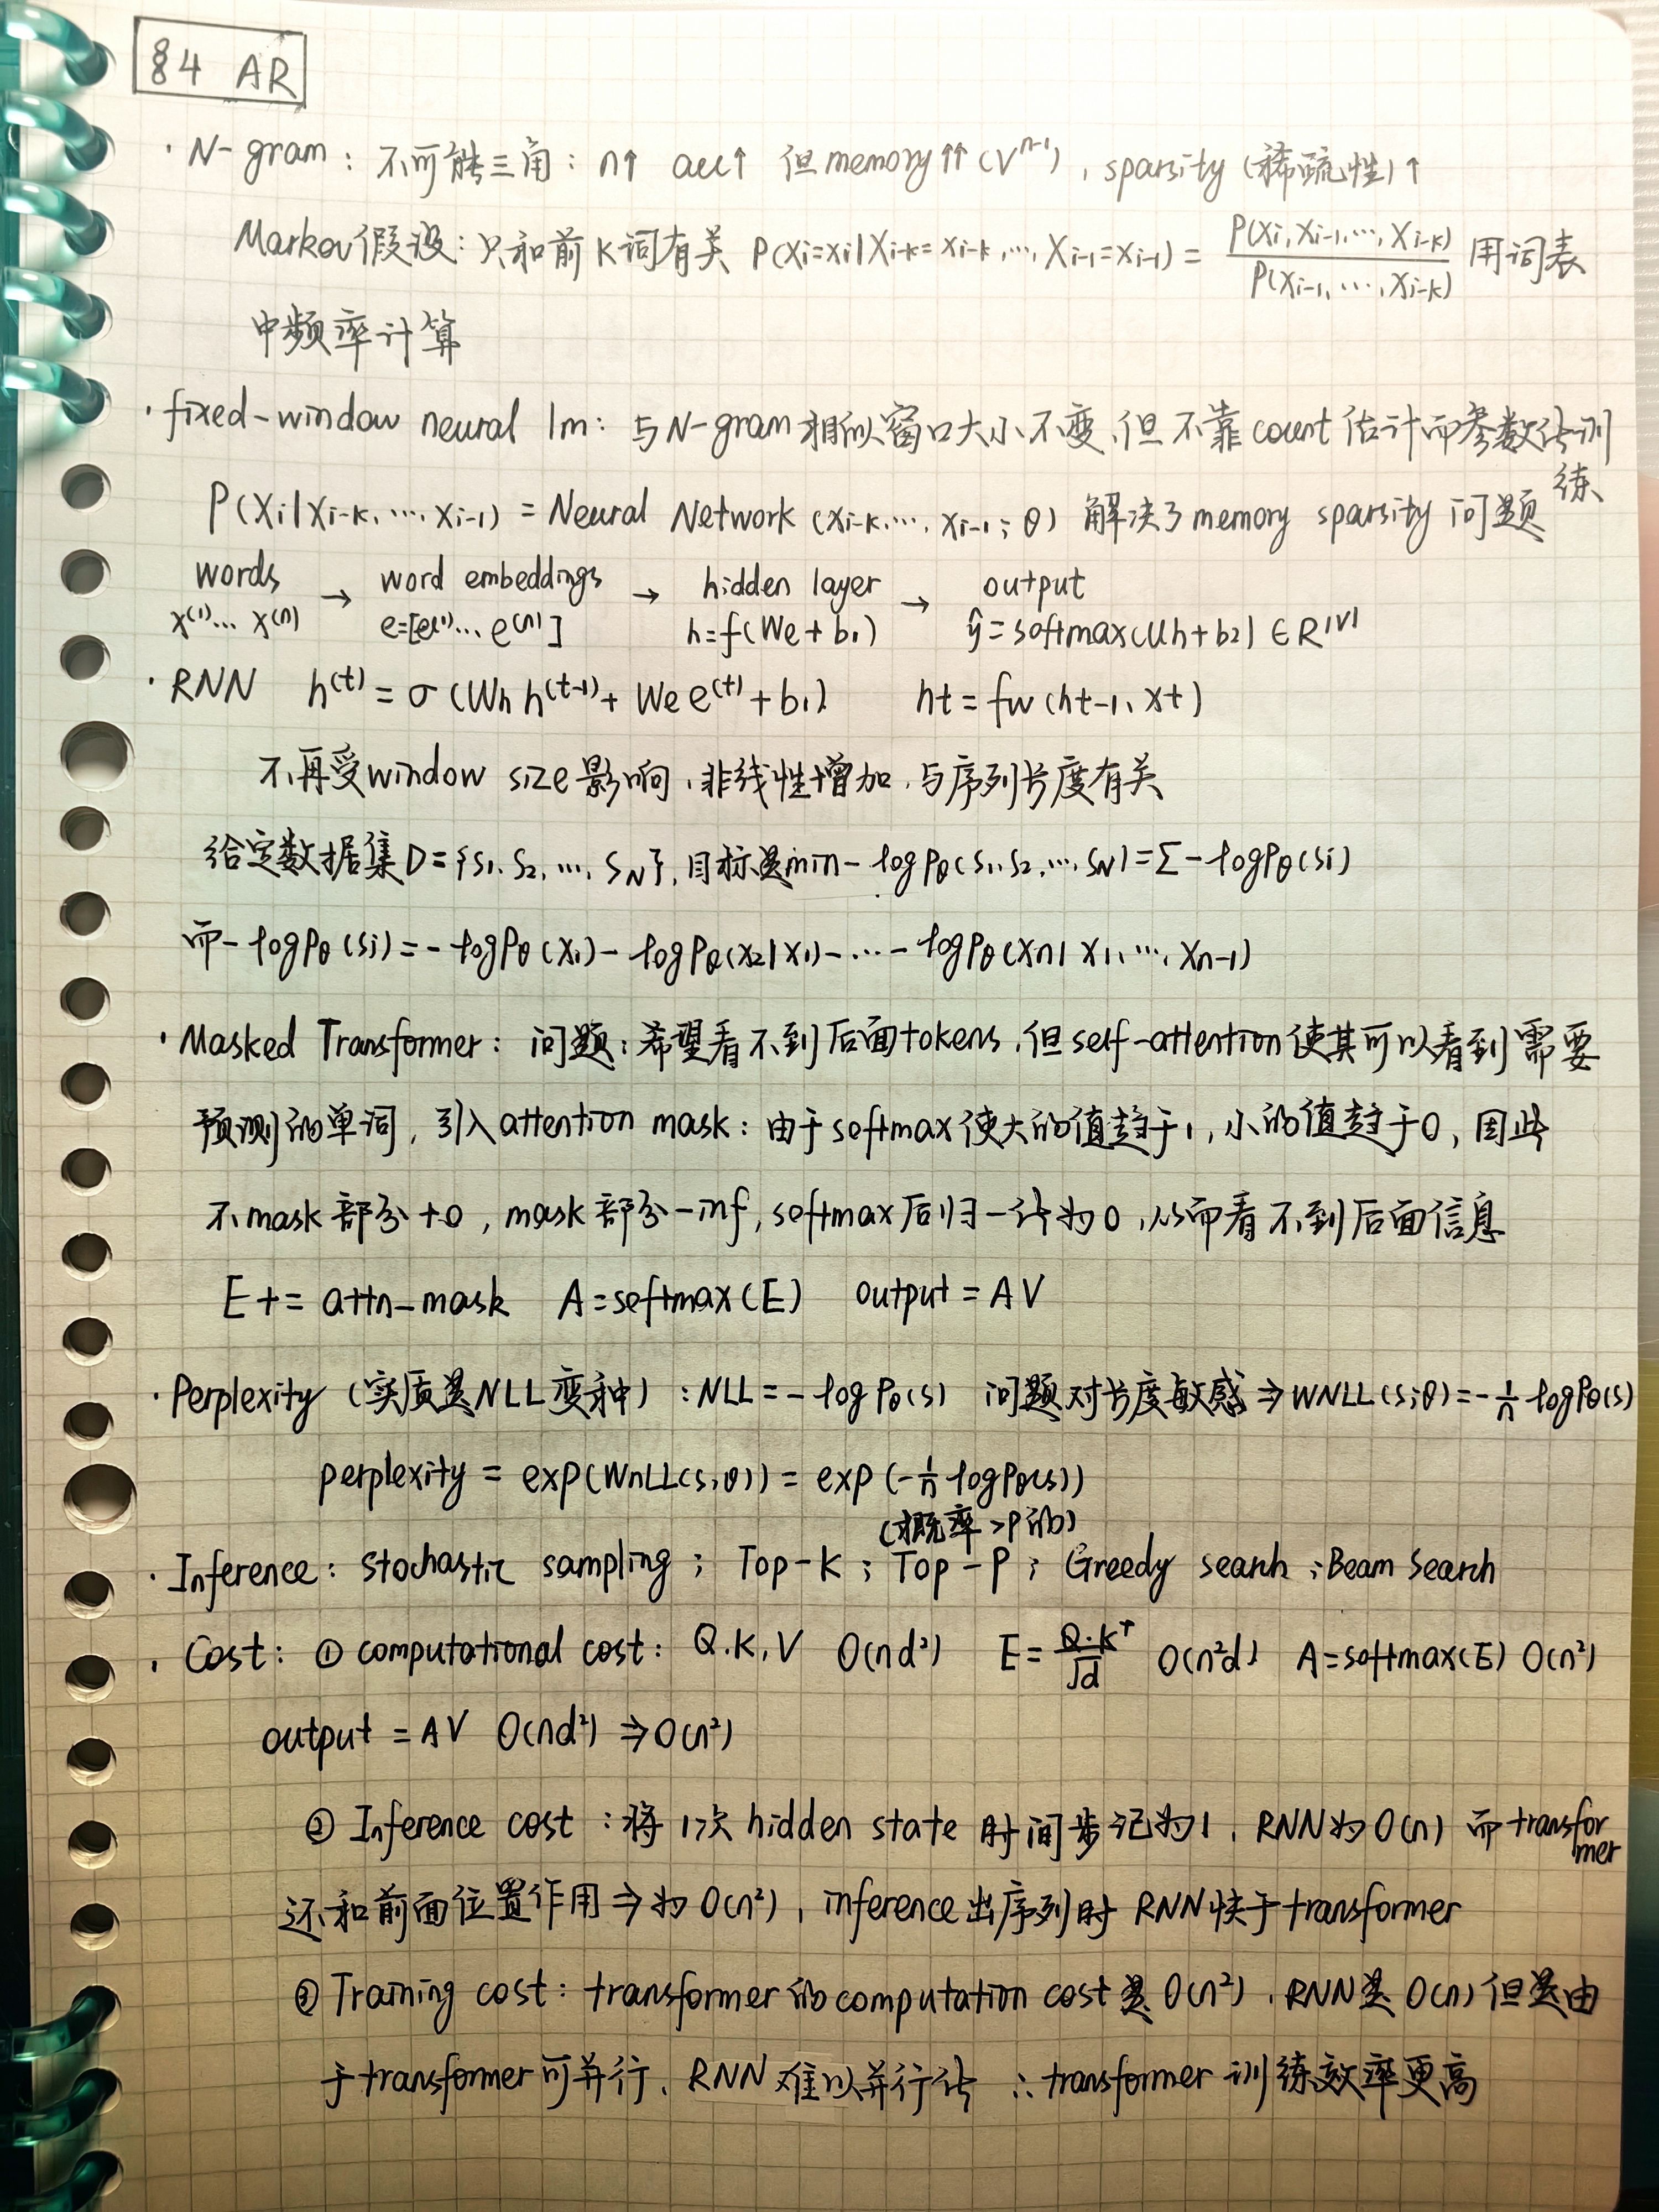 §4 AR
· N-gram：不可能三角：n↑ acc↑ 但memory↑↑(V^(n-1))，sparsity (稀疏性)↑
Markov假设：只和前K词有关 P(Xi=xi|Xi-k=xi-k,…,Xi-1=xi-1) = P(Xi,Xi-1,…,Xi-k) / P(Xi-1,…,Xi-k) 用词表
中频率计算
· fixed-window neural lm：与N-gram相似窗口大小不变，但不靠count估计而参数化训练
P(Xi|Xi-k,…,Xi-1) = Neural Network (xi-k,…,xi-1; θ) 解决了memory sparsity问题
words → word embeddings → hidden layer → output
x^(1)… x^(n) e=[e^(1)… e^(n)] h=f(We+b1) ŷ=softmax(Uh+b2) ∈ R^|V|
· RNN h^(t) = σ(Wh h^(t-1) + We e^(t) + b1) ht = fw(ht-1, xt)
不再受window size影响，非线性增加，与序列长度有关
给定数据集D={s1, s2, …, sN}，目标是min -logPθ(s1,s2,…,sN)=Σ-logPθ(si)
而-logPθ(si)=-logPθ(x1)-logPθ(x2|x1)-…-logPθ(xn|x1,…,xn-1)
· Masked Transformer：问题：希望看不到后面tokens，但self-attention使其可以看到需要
预测的单词，引入attention mask：由于softmax使大的值趋于1，小的值趋于0，因此
不mask部分+0，mask部分-inf，softmax后归一化为0，从而看不到后面信息
E += attn_mask A=softmax(E) output = AV
· Perplexity (实质是NLL变种)：NLL=-logPθ(s) 问题对长度敏感⇒WNLL(s;θ)=-1/n logPθ(s)
perplexity = exp(WnLL(s;θ)) = exp(-1/n logPθ(s))
(概率>P的)
· Inference：stochastic sampling；Top-K；Top-P；Greedy search；Beam Search
· Cost：① computational cost：Q.K,V O(nd²) E=Q·K^T/√d O(n²d) A=softmax(E) O(n²)
output = AV O(nd²) ⇒O(n²)
② Inference cost：将1次hidden state时间步记为1，RNN为O(n) 而transformer
还和前面位置作用⇒为O(n²)，inference出序列时RNN快于transformer
③ Training cost：transformer的computation cost是O(n²)，RNN是O(n)但是由
于transformer可并行，RNN难以并行化 ∴transformer训练效率更高